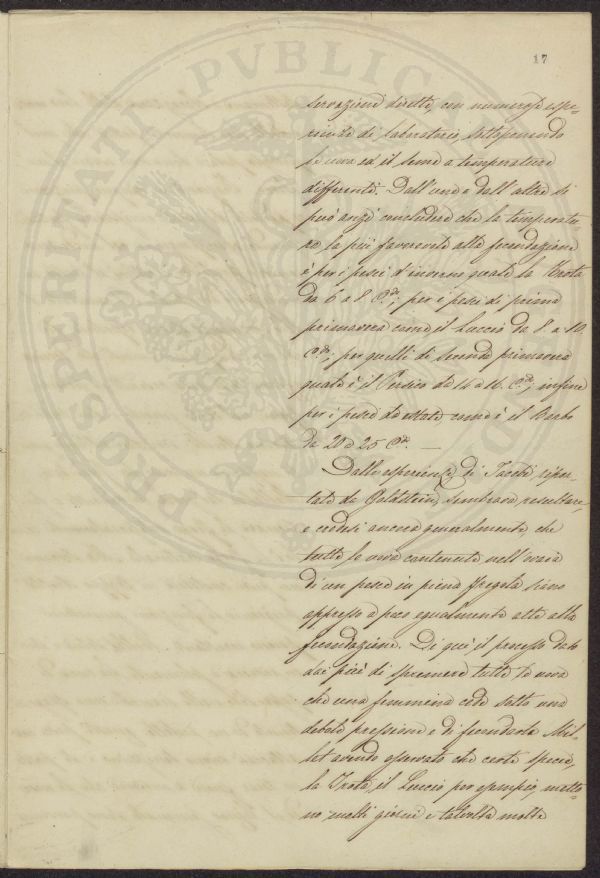 17
servazioni dirette, con numerose espe-
rienze di laboratorio, sottoponendo
le uova ed il seme a temperature
differenti. Dall'une e dall'altre si
può anzi concludere che la temperatu-
ra la più favorevole alla fecondazione
è per i pesci d'inverno quale la Trota
da 6 a 8 C.di; per i pesci di prima
primavera come il Luccio da 8 a 10
C.di; per quelli di seconda primavera
quale è il Persico da 14 a 16 C.di, infine
per i pesci da estate come è il Barbo
da 20 a 25 C.di —
Dalle esperienze di Jacobi ripor-
tate da Goldstein, sembrava resultare,
e credesi ancora generalmente, che
tutte le uova contenute nell'ovaia
di un pesce in piena fregola siano
appresso a poco egualmente atte alla
fecondazione. Di qui il processo dato
dai più di spremere tutte le uova
che una femmina cede sotto una
debole pressione e di fecondarle. Mil-
let avendo osservato che certe specie,
la Trota, il Luccio per esempio, metto-
no molti giorni e talvolta molte
PROSPERITATI PVBLICAE